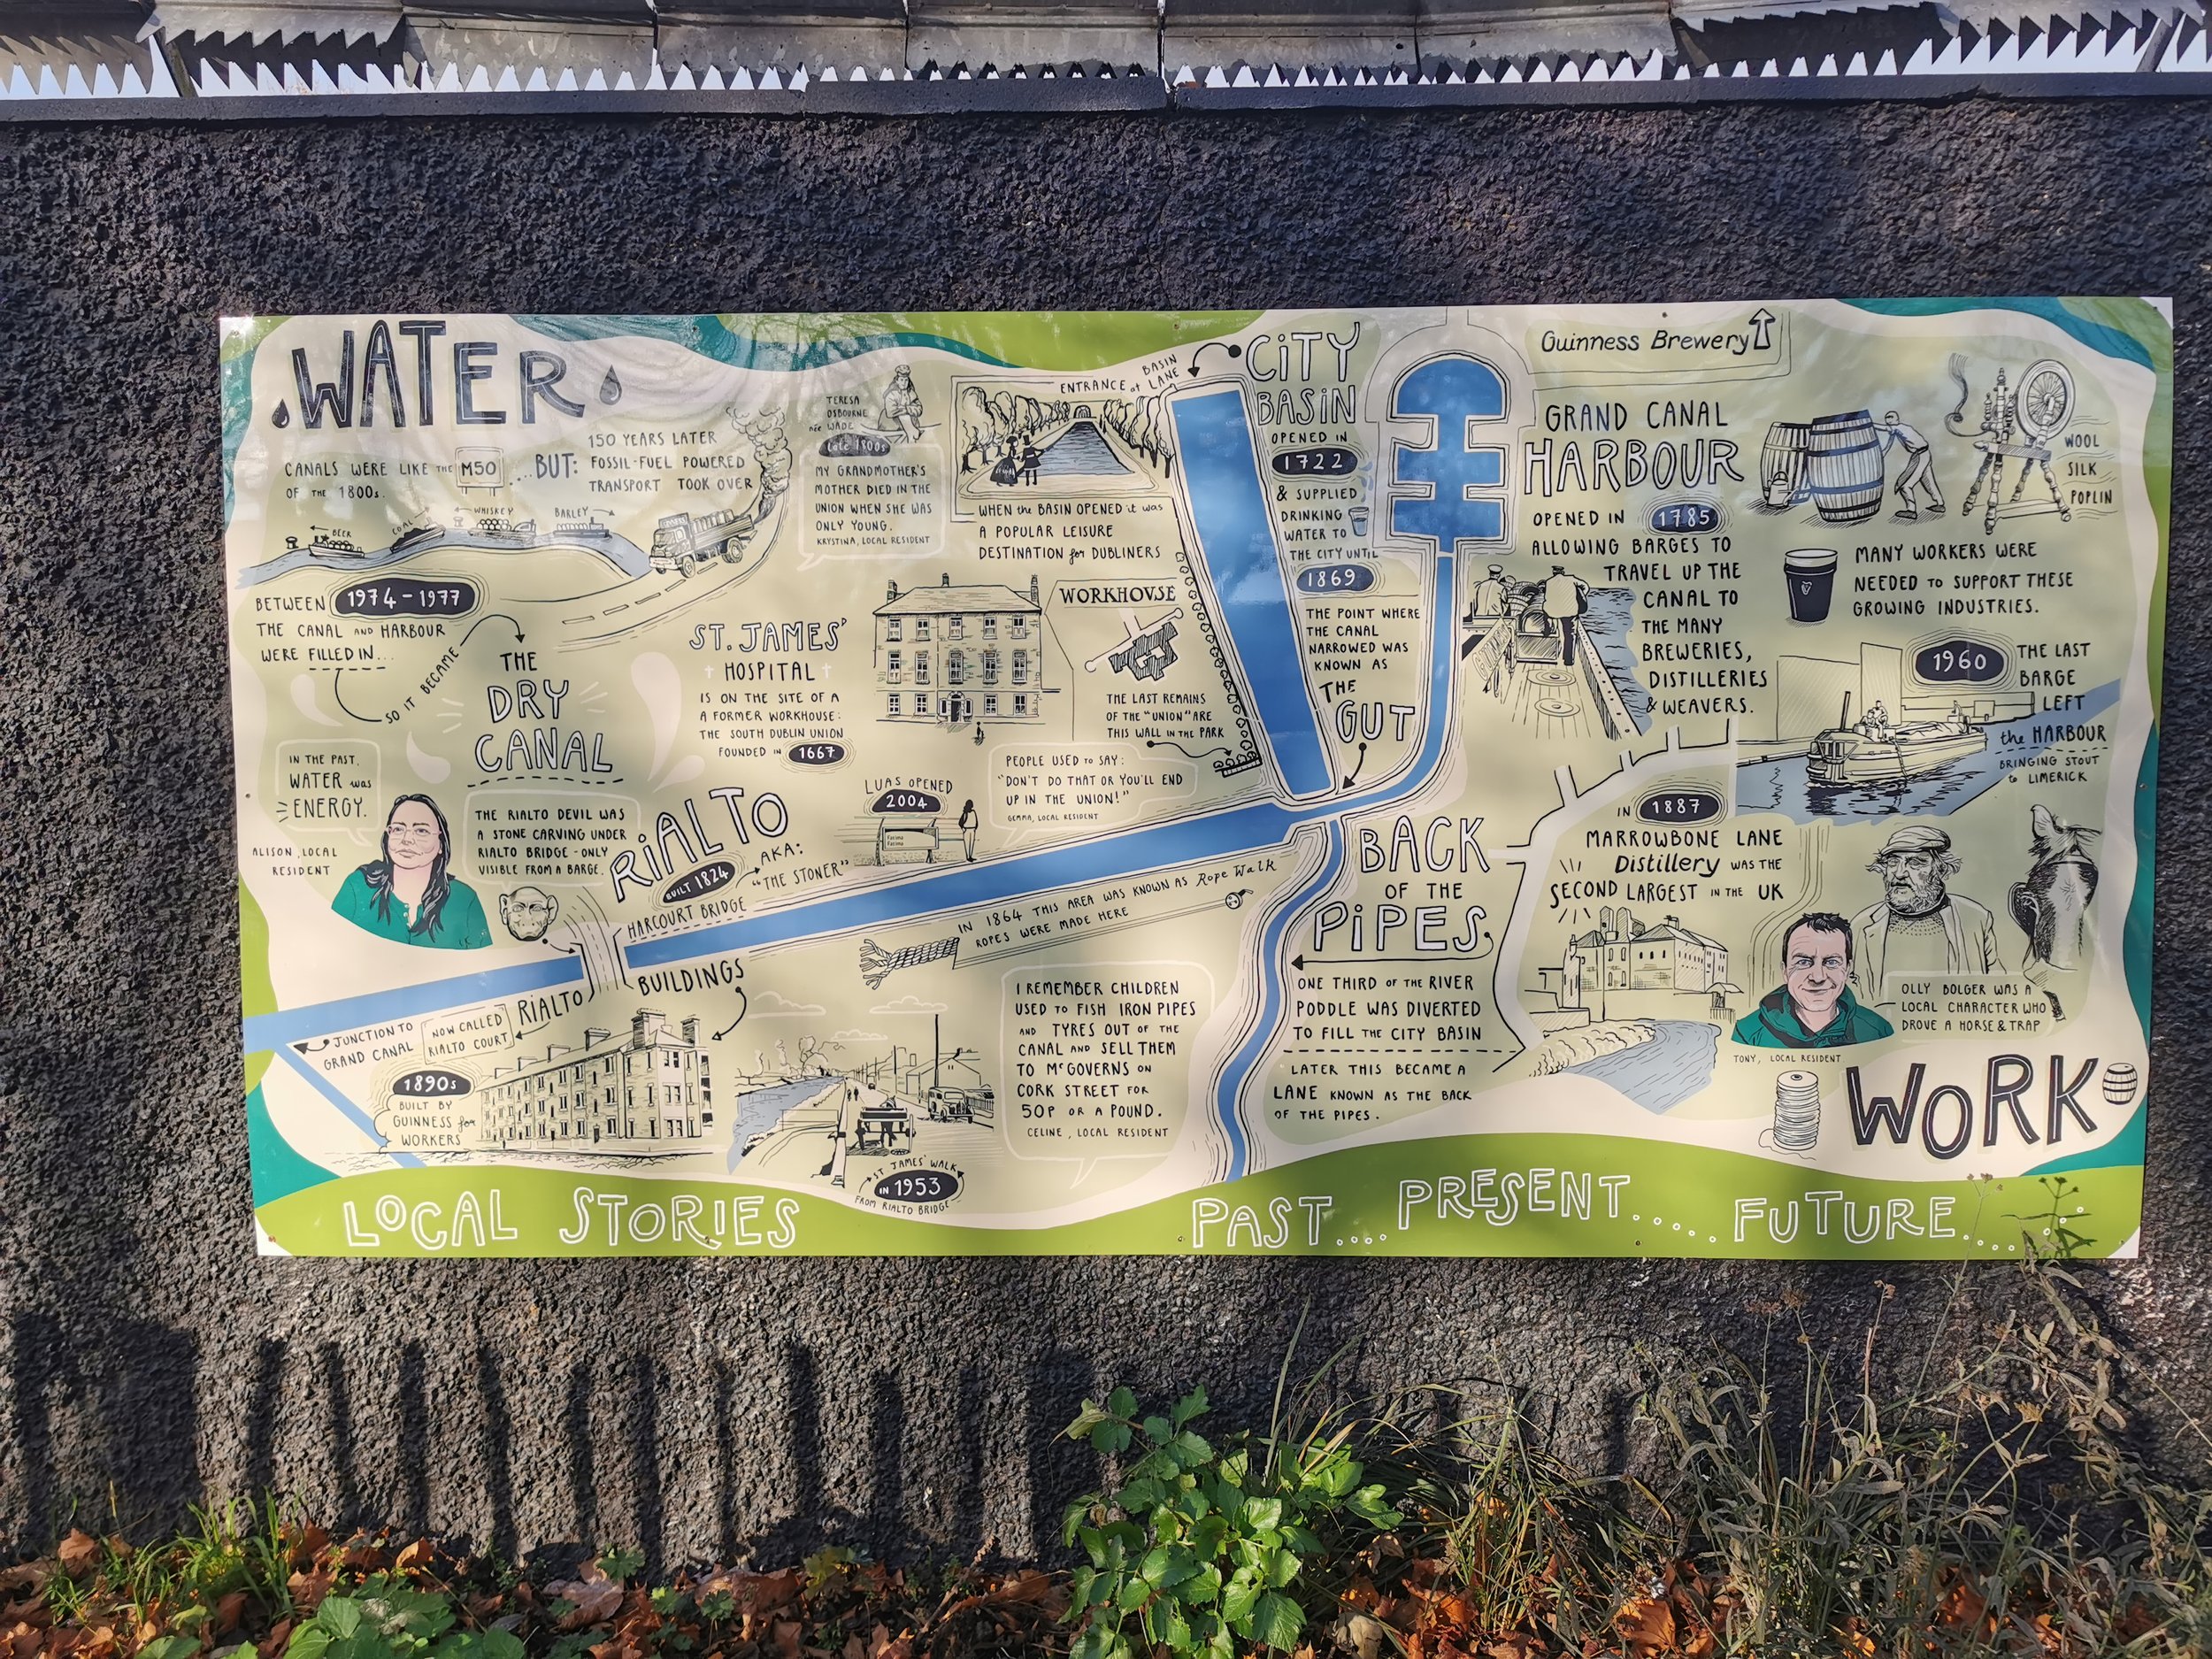 WATER
CANALS WERE LIKE THE M50
OF THE 1800s.
...BUT:
150 YEARS LATER
FOSSIL-FUEL POWERED
TRANSPORT TOOK OVER
BEER
COAL
WHISKEY
BARLEY
BETWEEN 1974-1977
THE CANAL AND HARBOUR
WERE FILLED IN...
SO IT BECAME
THE
DRY
CANAL
IN THE PAST,
WATER WAS
ENERGY.
ALISON, LOCAL
RESIDENT
THE RIALTO DEVIL WAS
A STONE CARVING UNDER
RIALTO BRIDGE - ONLY
VISIBLE FROM A BARGE.
RIALTO
BUILT 1824
AKA:
"THE STONER"
HARCOURT BRIDGE
JUNCTION TO
GRAND CANAL
NOW CALLED
RIALTO COURT
RIALTO
BUILDINGS
1890s
BUILT BY
GUINNESS for
WORKERS
TERESA
OSBOURNE
née WADE
Late 1800s
MY GRANDMOTHER'S
MOTHER DIED IN THE
UNION WHEN SHE WAS
ONLY YOUNG.
KRYSTINA, LOCAL RESIDENT
ENTRANCE at BASIN
LANE
WHEN the BASIN OPENED it was
A POPULAR LEISURE
DESTINATION for DUBLINERS
ST. JAMES'
HOSPITAL
IS ON THE SITE OF A
A FORMER WORKHOUSE:
THE SOUTH DUBLIN UNION
FOUNDED IN 1667
WORKHOUSE
THE LAST REMAINS
OF THE "UNION" ARE
THIS WALL IN THE PARK
PEOPLE USED to SAY:
"DON'T DO THAT OR YOU'LL END
UP IN THE UNION!"
GEMMA, LOCAL RESIDENT
LUAS OPENED
2004
Fatima
Fatima
IN 1864 THIS AREA WAS KNOWN AS Rope Walk
ROPES WERE MADE HERE
ST JAMES' WALK
IN 1953
FROM RIALTO BRIDGE
I REMEMBER CHILDREN
USED TO FISH IRON PIPES
AND TYRES OUT OF THE
CANAL AND SELL THEM
TO McGOVERNS ON
CORK STREET FOR
50P OR A POUND.
CELINE, LOCAL RESIDENT
CITY
BASIN
OPENED IN
1722
& SUPPLIED
DRINKING
WATER TO
THE CITY UNTIL
1869
THE POINT WHERE
THE CANAL
NARROWED WAS
KNOWN AS
THE
GUT
BACK
OF THE
PIPES
ONE THIRD OF THE RIVER
PODDLE WAS DIVERTED
TO FILL THE CITY BASIN
LATER THIS BECAME A
LANE KNOWN AS THE BACK
OF THE PIPES.
Guinness Brewery
GRAND CANAL
HARBOUR
OPENED IN 1785
ALLOWING BARGES TO
TRAVEL UP THE
CANAL TO
THE MANY
BREWERIES,
DISTILLERIES
& WEAVERS.
WOOL
SILK
POPLIN
MANY WORKERS WERE
NEEDED TO SUPPORT THESE
GROWING INDUSTRIES.
1960 THE LAST
BARGE
LEFT
the HARBOUR
BRINGING STOUT
to LIMERICK
IN 1887
MARROWBONE LANE
Distillery WAS THE
SECOND LARGEST IN THE UK
TONY, LOCAL RESIDENT
OLLY BOLGER WAS A
LOCAL CHARACTER WHO
DROVE A HORSE & TRAP
WORK
LOCAL STORIES
PAST.... PRESENT..... FUTURE....